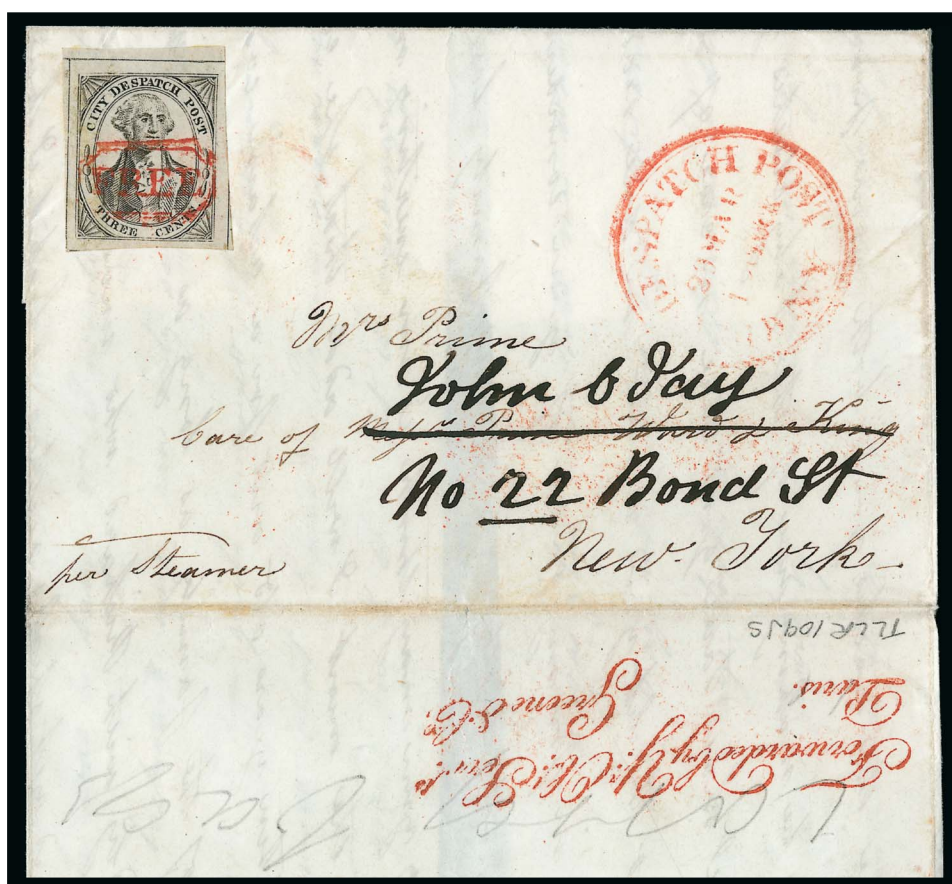 CITY DESPATCH POST
THREE CENTS
FREE
DESPATCH POST
29 MAR
1
N.Y
Mrs Prime
John C Jay
Care of Messrs Prime Ward & King
No 22 Bond St
New-York
per Steamer
TLLR109JS
Forwarded by
Greene & Co.
Paris.